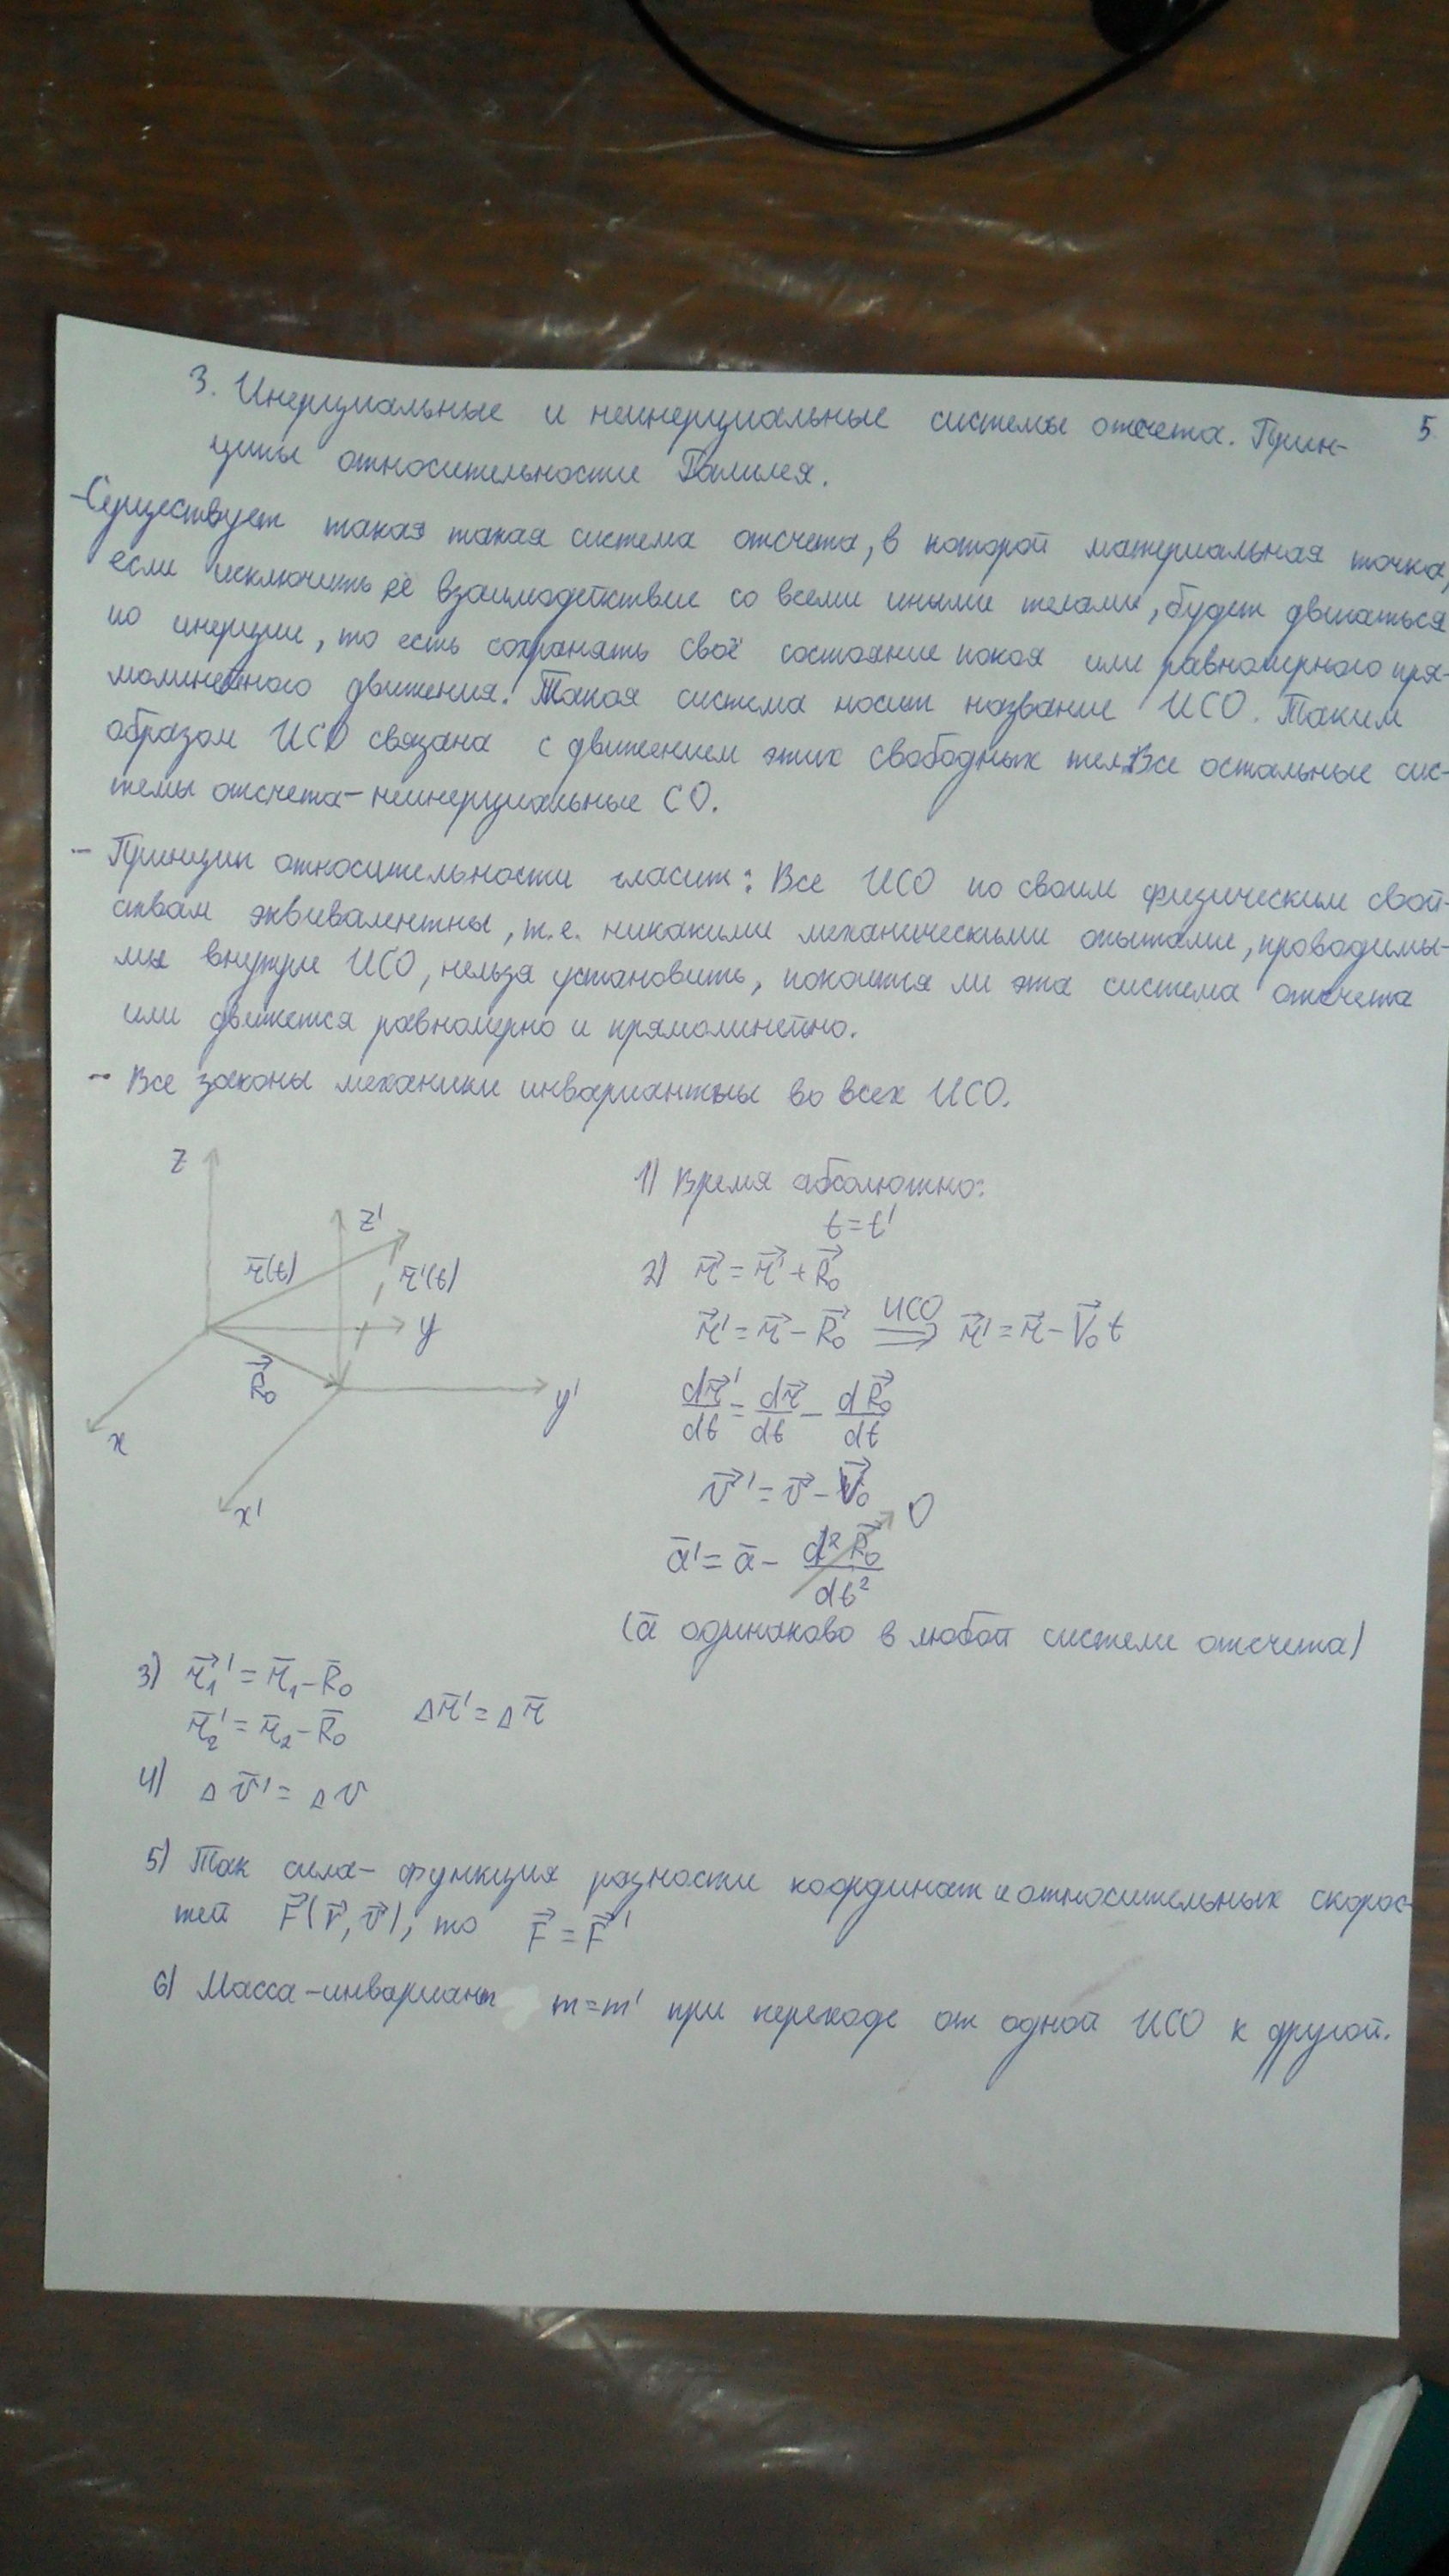 3. Инерциальные и неинерциальные системы отсчета. Прин- 5
ципы относительности Галилея.
- Существует такая такая система отсчета, в которой материальная точка,
если исключить её взаимодействие со всеми иными телами, будет двигаться
по инерции, то есть сохранять своё состояние покоя или равномерного пря-
молинейного движения. Такая система носит название ИСО. Таким
образом ИСО связана с движением этих свободных тел. Все остальные сис-
темы отсчета - неинерциальные СО.
- Принцип относительности гласит: Все ИСО по своим физическим свой-
ствам эквивалентны, т.е. никакими механическими опытами, проводимы-
ми внутри ИСО, нельзя установить, покоится ли эта система отсчета
или движется равномерно и прямолинейно.
- Все законы механики инвариантны во всех ИСО.
z
z'
r̄(t)
r̄'(t)
y
R⃗₀
y'
x
x'
1) Время абсолютно:
t = t'
2) r⃗ = r⃗' + R⃗₀
r⃗' = r⃗ - R⃗₀ ⇒ (ИСО) r⃗' = r⃗ - V⃗₀t
dr⃗'/dt = dr⃗/dt - dR⃗₀/dt
v⃗' = v⃗ - V⃗₀
ā' = ā - d²R⃗₀/dt² → 0
(ā одинаково в любой системе отсчета)
3) r⃗₁' = r̄₁ - R̄₀
r̄₂' = r̄₂ - R̄₀ Δr̄' = Δr̄
4) Δv̄' = Δv
5) Так сила - функция разности координат и относительных скорос-
тей F⃗(r⃗, v⃗), то F⃗ = F⃗'
6) Масса - инвариант m = m' при переходе от одной ИСО к другой.